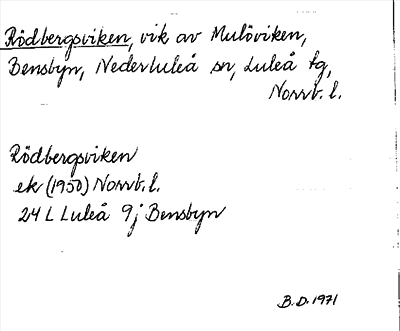 Rödbergsviken, vik av Mulöviken,
Bensbyn, Nederluleå sn, Luleå tg,
Norrb. l.
Rödbergsviken
ek (1950) Norrb. l.
24 L Luleå 9j Bensbyn
B.D. 1971